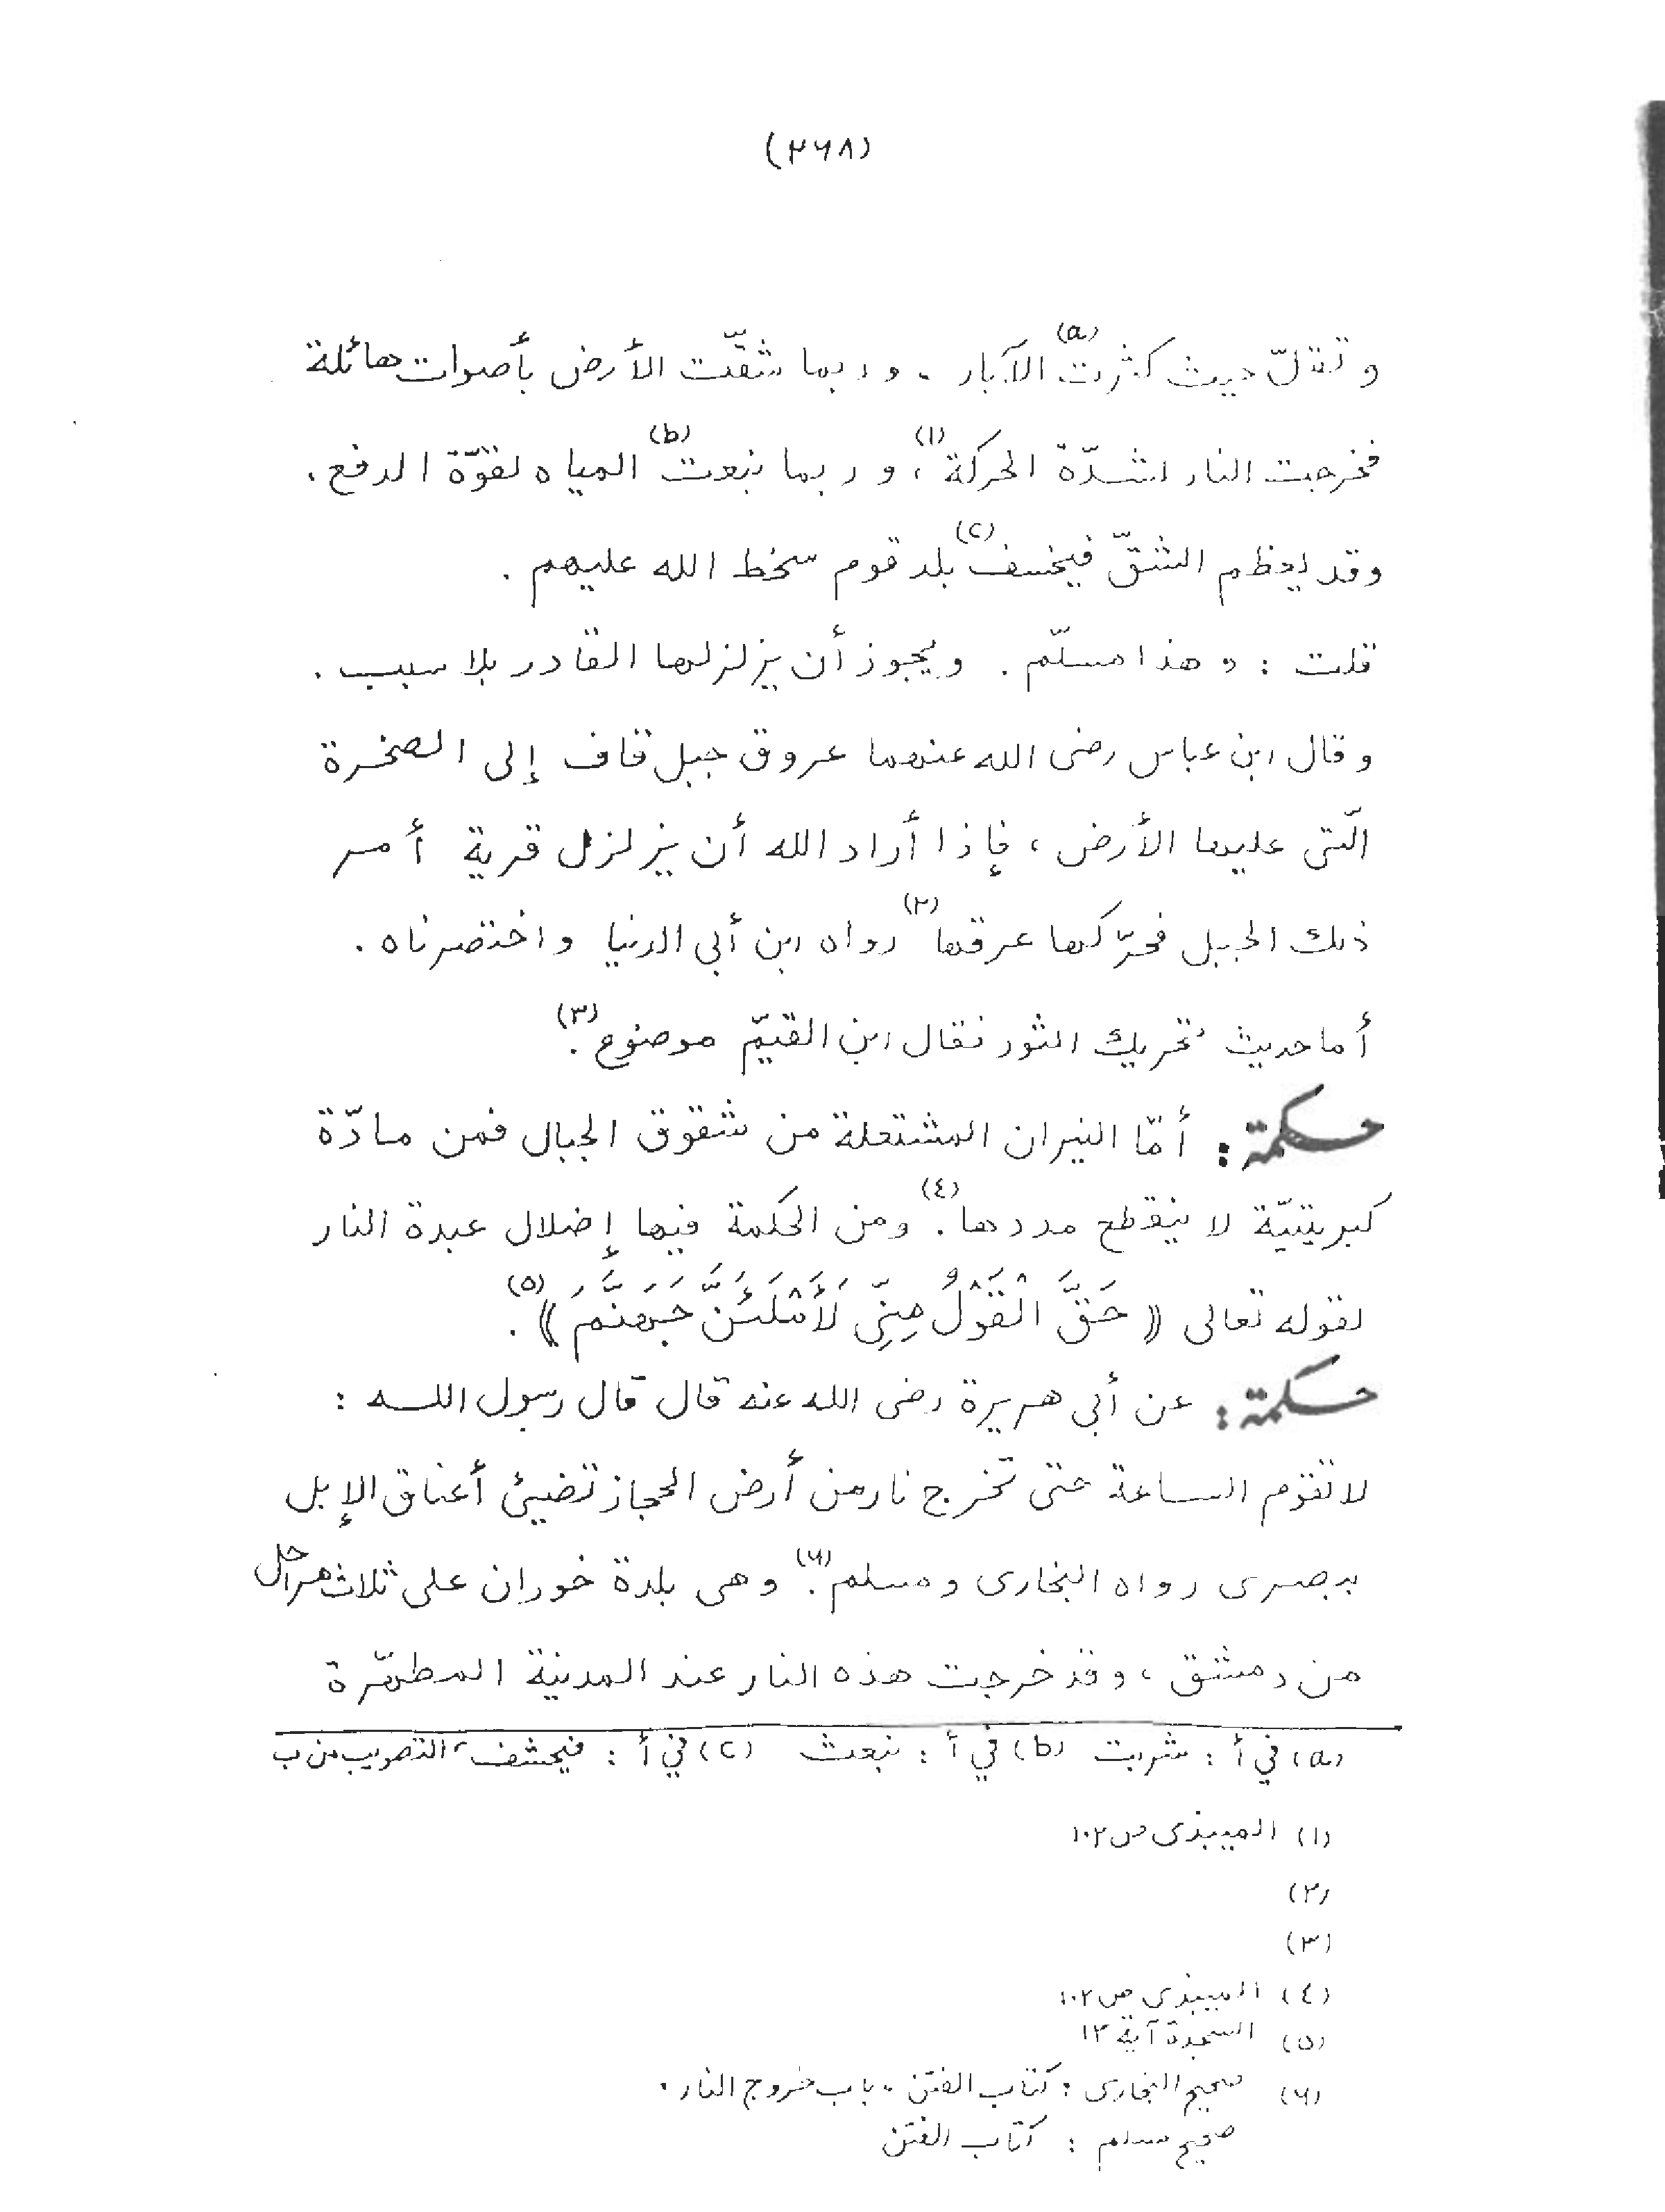 (٢٦٨)
وتقلّ حيث كثرت(a) الآبار . وربما شقّت الأرض بأصوات هائلة
فخرجت النار لشدّة الحركة(١)، وربما نبعت(b) المياه لقوّة الدفع .
وقد يعظم الشقّ فيخسف(c) بلد قوم سخط الله عليهم .
قلت : وهذا مسلّم . ويجوز أن يزلزلها القادر بلا سبب .
وقال ابن عباس رضى الله عنهما عروق جبل قاف إلى الصخرة
الّتى عليها الأرض ، فإذا أراد الله أن يزلزل قرية أمر
ذلك الجبل فحرّكها عرقها(٢) رواه ابن أبى الدنيا واختصرناه .
أما حديث تحريك الثور فقال ابن القيّم موضوع(٣).
حكمة : أمّا النيران المشتعلة من شقوق الجبال فمن مادّة
كبريتيّة لا ينقطع مددها(٤). ومن الحكمة فيها إضلال عبدة النار
لقوله تعالى ﴿ حَقَّ الْقَوْلُ مِنِّى لَأَمْلَئَنَّ جَهَنَّمَ ﴾(٥) .
حكمة : عن أبى هريرة رضى الله عنه قال قال رسول الله :
لا تقوم الساعة حتى تخرج نار من أرض الحجاز تضيئ أعناق الإبل
ببصرى رواه البخارى ومسلم(٦). وهى بلدة خوران على ثلاث مراحل
من دمشق ، وقد خرجت هذه النار عند المدينة المطهّرة
(a) في أ : شربت (b) في أ : نبعث (c) في أ : فيحشف، التصويب من ب
(١) الميبذى ص ١٠٢
(٢)
(٣)
(٤) الميبذى ص ١٠٢
(٥) السجدة آية ١٣
(٦) صحيح البخارى : كتاب الفتن ، باب خروج النار .
صحيح مسلم : كتاب الفتن